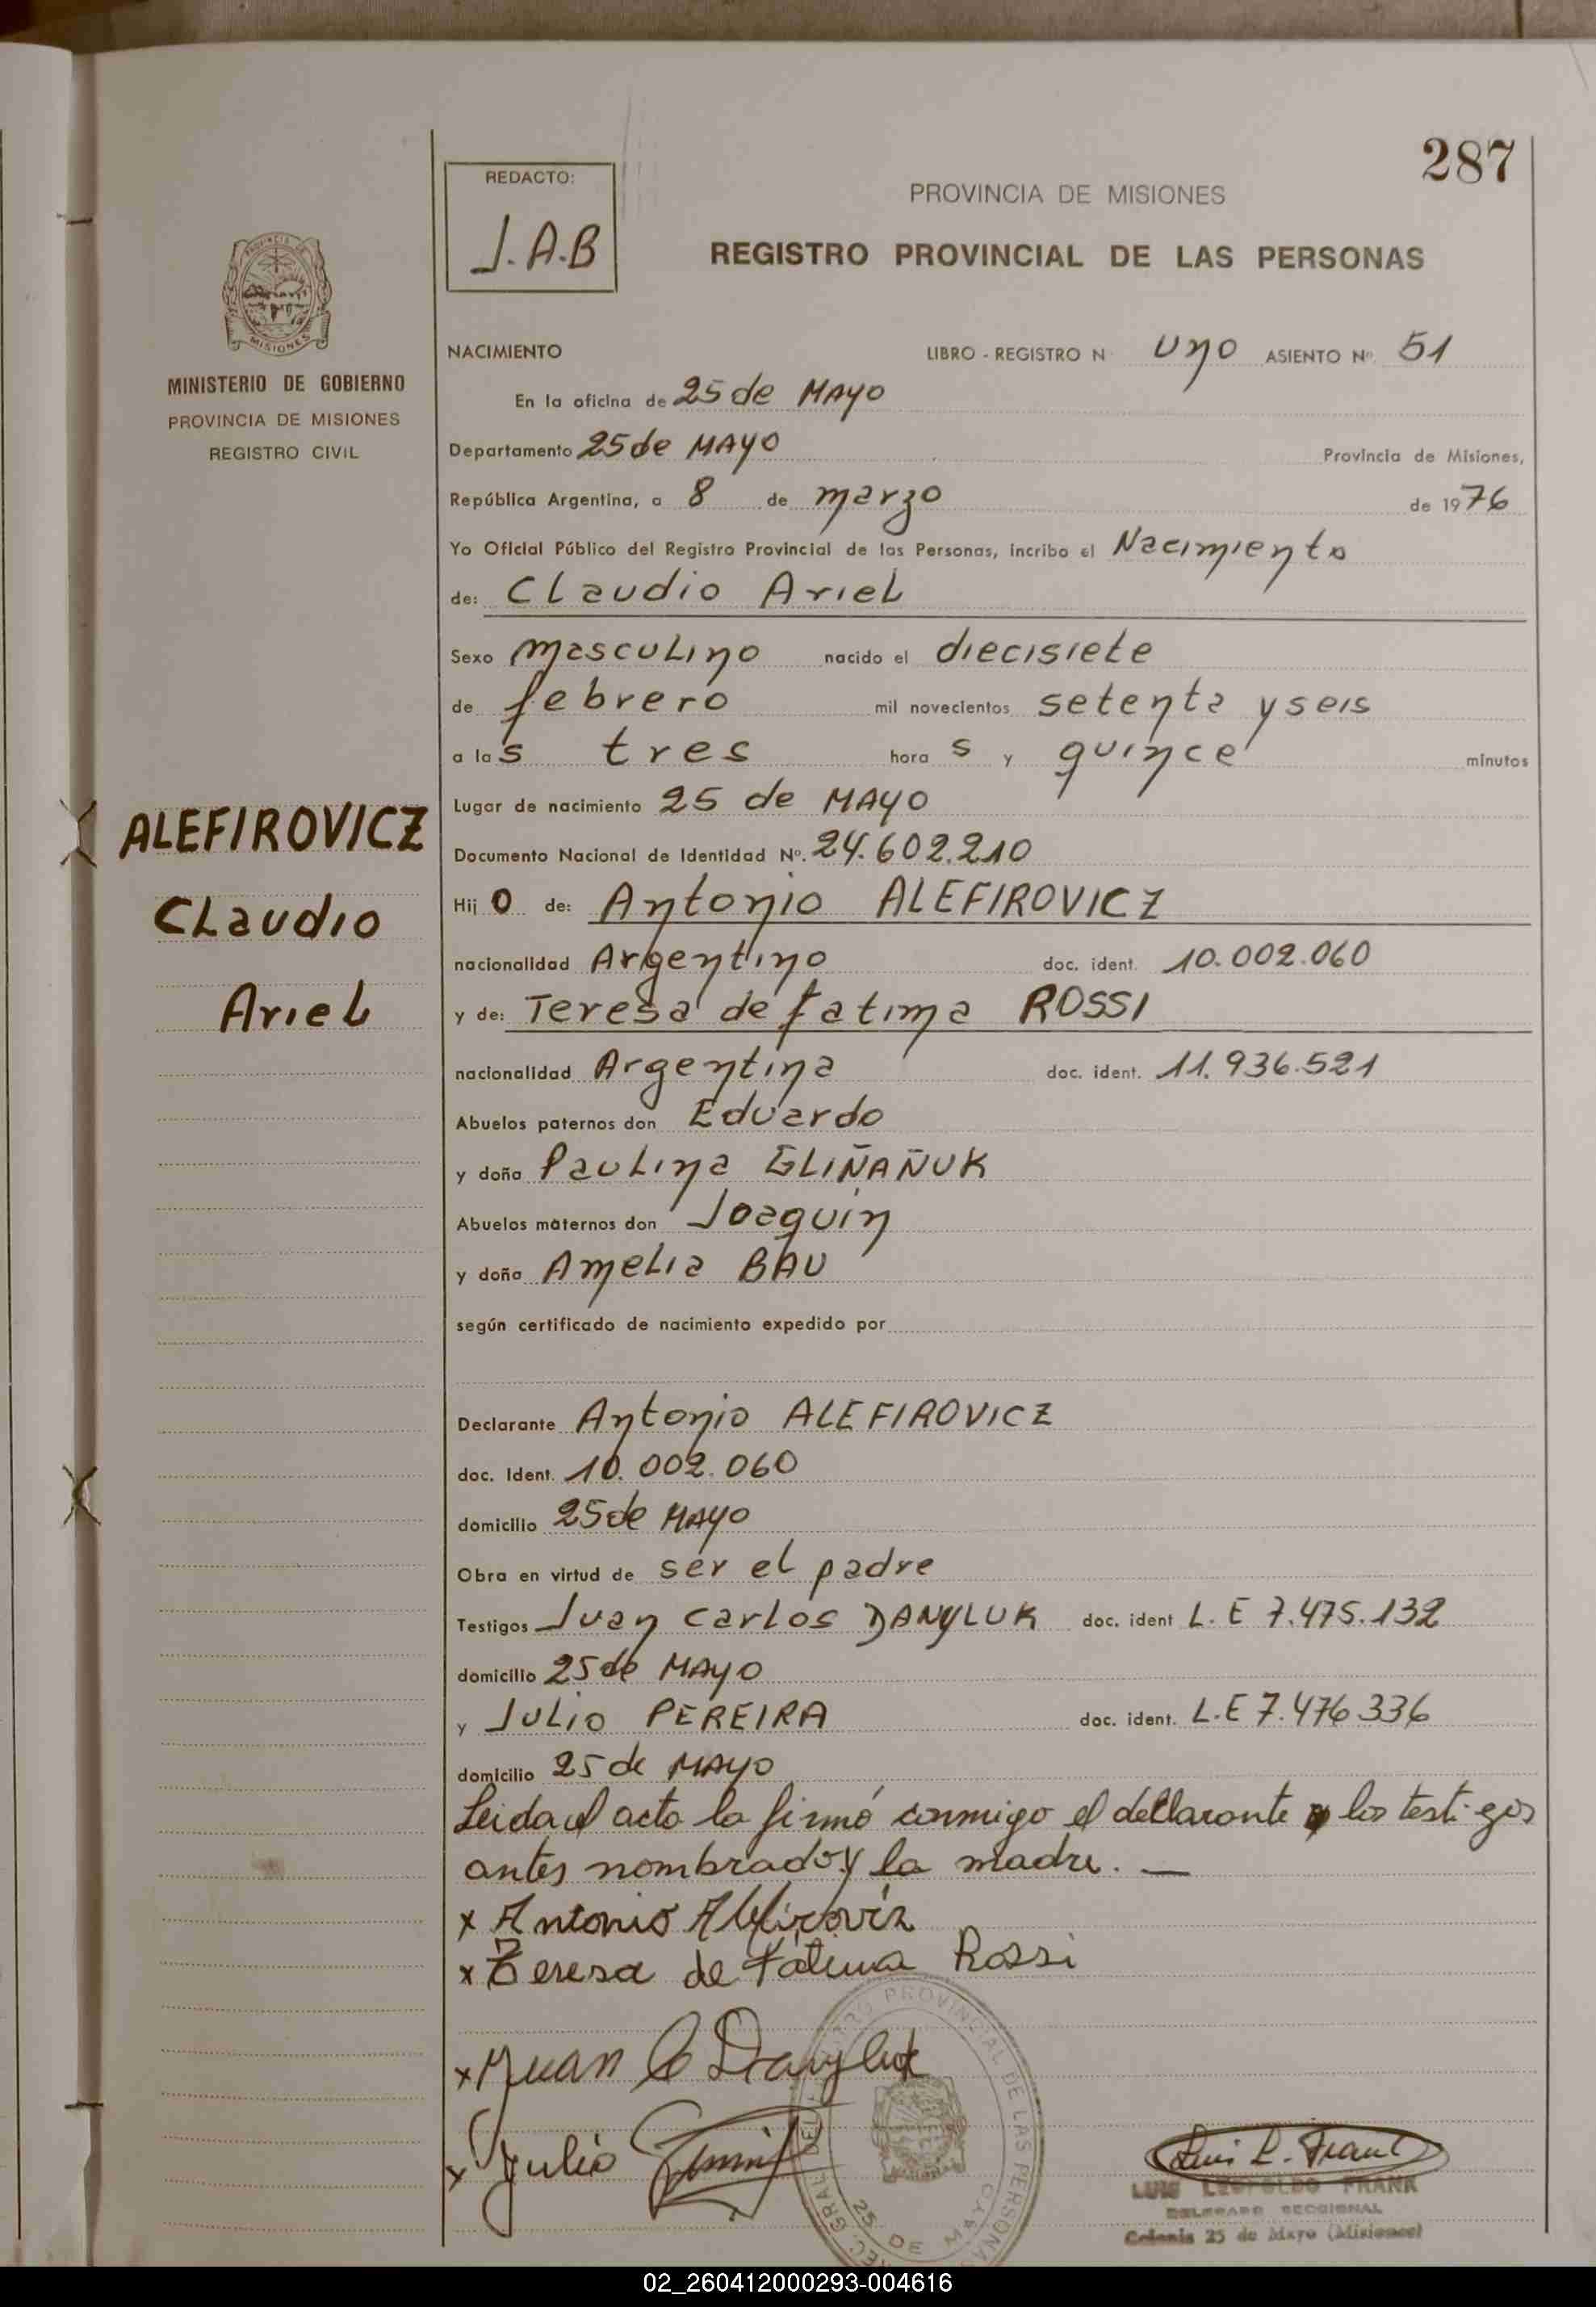 287
REDACTO:
J.A.B
PROVINCIA DE MISIONES
REGISTRO PROVINCIAL DE LAS PERSONAS
MISIONES
MINISTERIO DE GOBIERNO
PROVINCIA DE MISIONES
REGISTRO CIVIL
ALEFIROVICZ
Claudio
Ariel
NACIMIENTO LIBRO - REGISTRO N Uno ASIENTO Nº 51
En la oficina de 25 de MAYO
Departamento 25 de MAYO Provincia de Misiones,
República Argentina, a 8 de marzo de 1976
Yo Oficial Público del Registro Provincial de las Personas, incribo el Nacimiento
de: Claudio Ariel
Sexo masculino nacido el diecisiete
de febrero mil novecientos setenta y seis
a las tres horas y quince minutos
Lugar de nacimiento 25 de MAYO
Documento Nacional de Identidad Nº. 24.602.210
Hijo de: Antonio ALEFIROVICZ
nacionalidad Argentino doc. ident. 10.002.060
y de: Teresa de fatima ROSSI
nacionalidad Argentina doc. ident. 11.936.521
Abuelos paternos don Eduardo
y doña Paulina GLIÑAÑUK
Abuelos maternos don Joaquin
y doña Amelia BAU
según certificado de nacimiento expedido por
Declarante Antonio ALEFIROVICZ
doc. Ident. 10.002.060
domicilio 25 de MAYO
Obra en virtud de ser el padre
Testigos Juan Carlos DANYLUK doc. ident L.E 7.475.132
domicilio 25 de MAYO
y Julio PEREIRA doc. ident. L.E 7.476.336
domicilio 25 de MAYO
Leida el acta la firmó conmigo el declarante y los testigos
antes nombrados y la madre. —
x Antonio Alefirovicz
x Teresa de Fátima Rossi
x Juan C Danyluk
x Julio
REGISTRO PROVINCIAL DE LAS PERSONAS
25 DE MAYO
Luis L. Frank
LUIS LEOPOLDO FRANK
DELEGADO SECCIONAL
Colonia 25 de Mayo (Misiones)
02_260412000293-004616